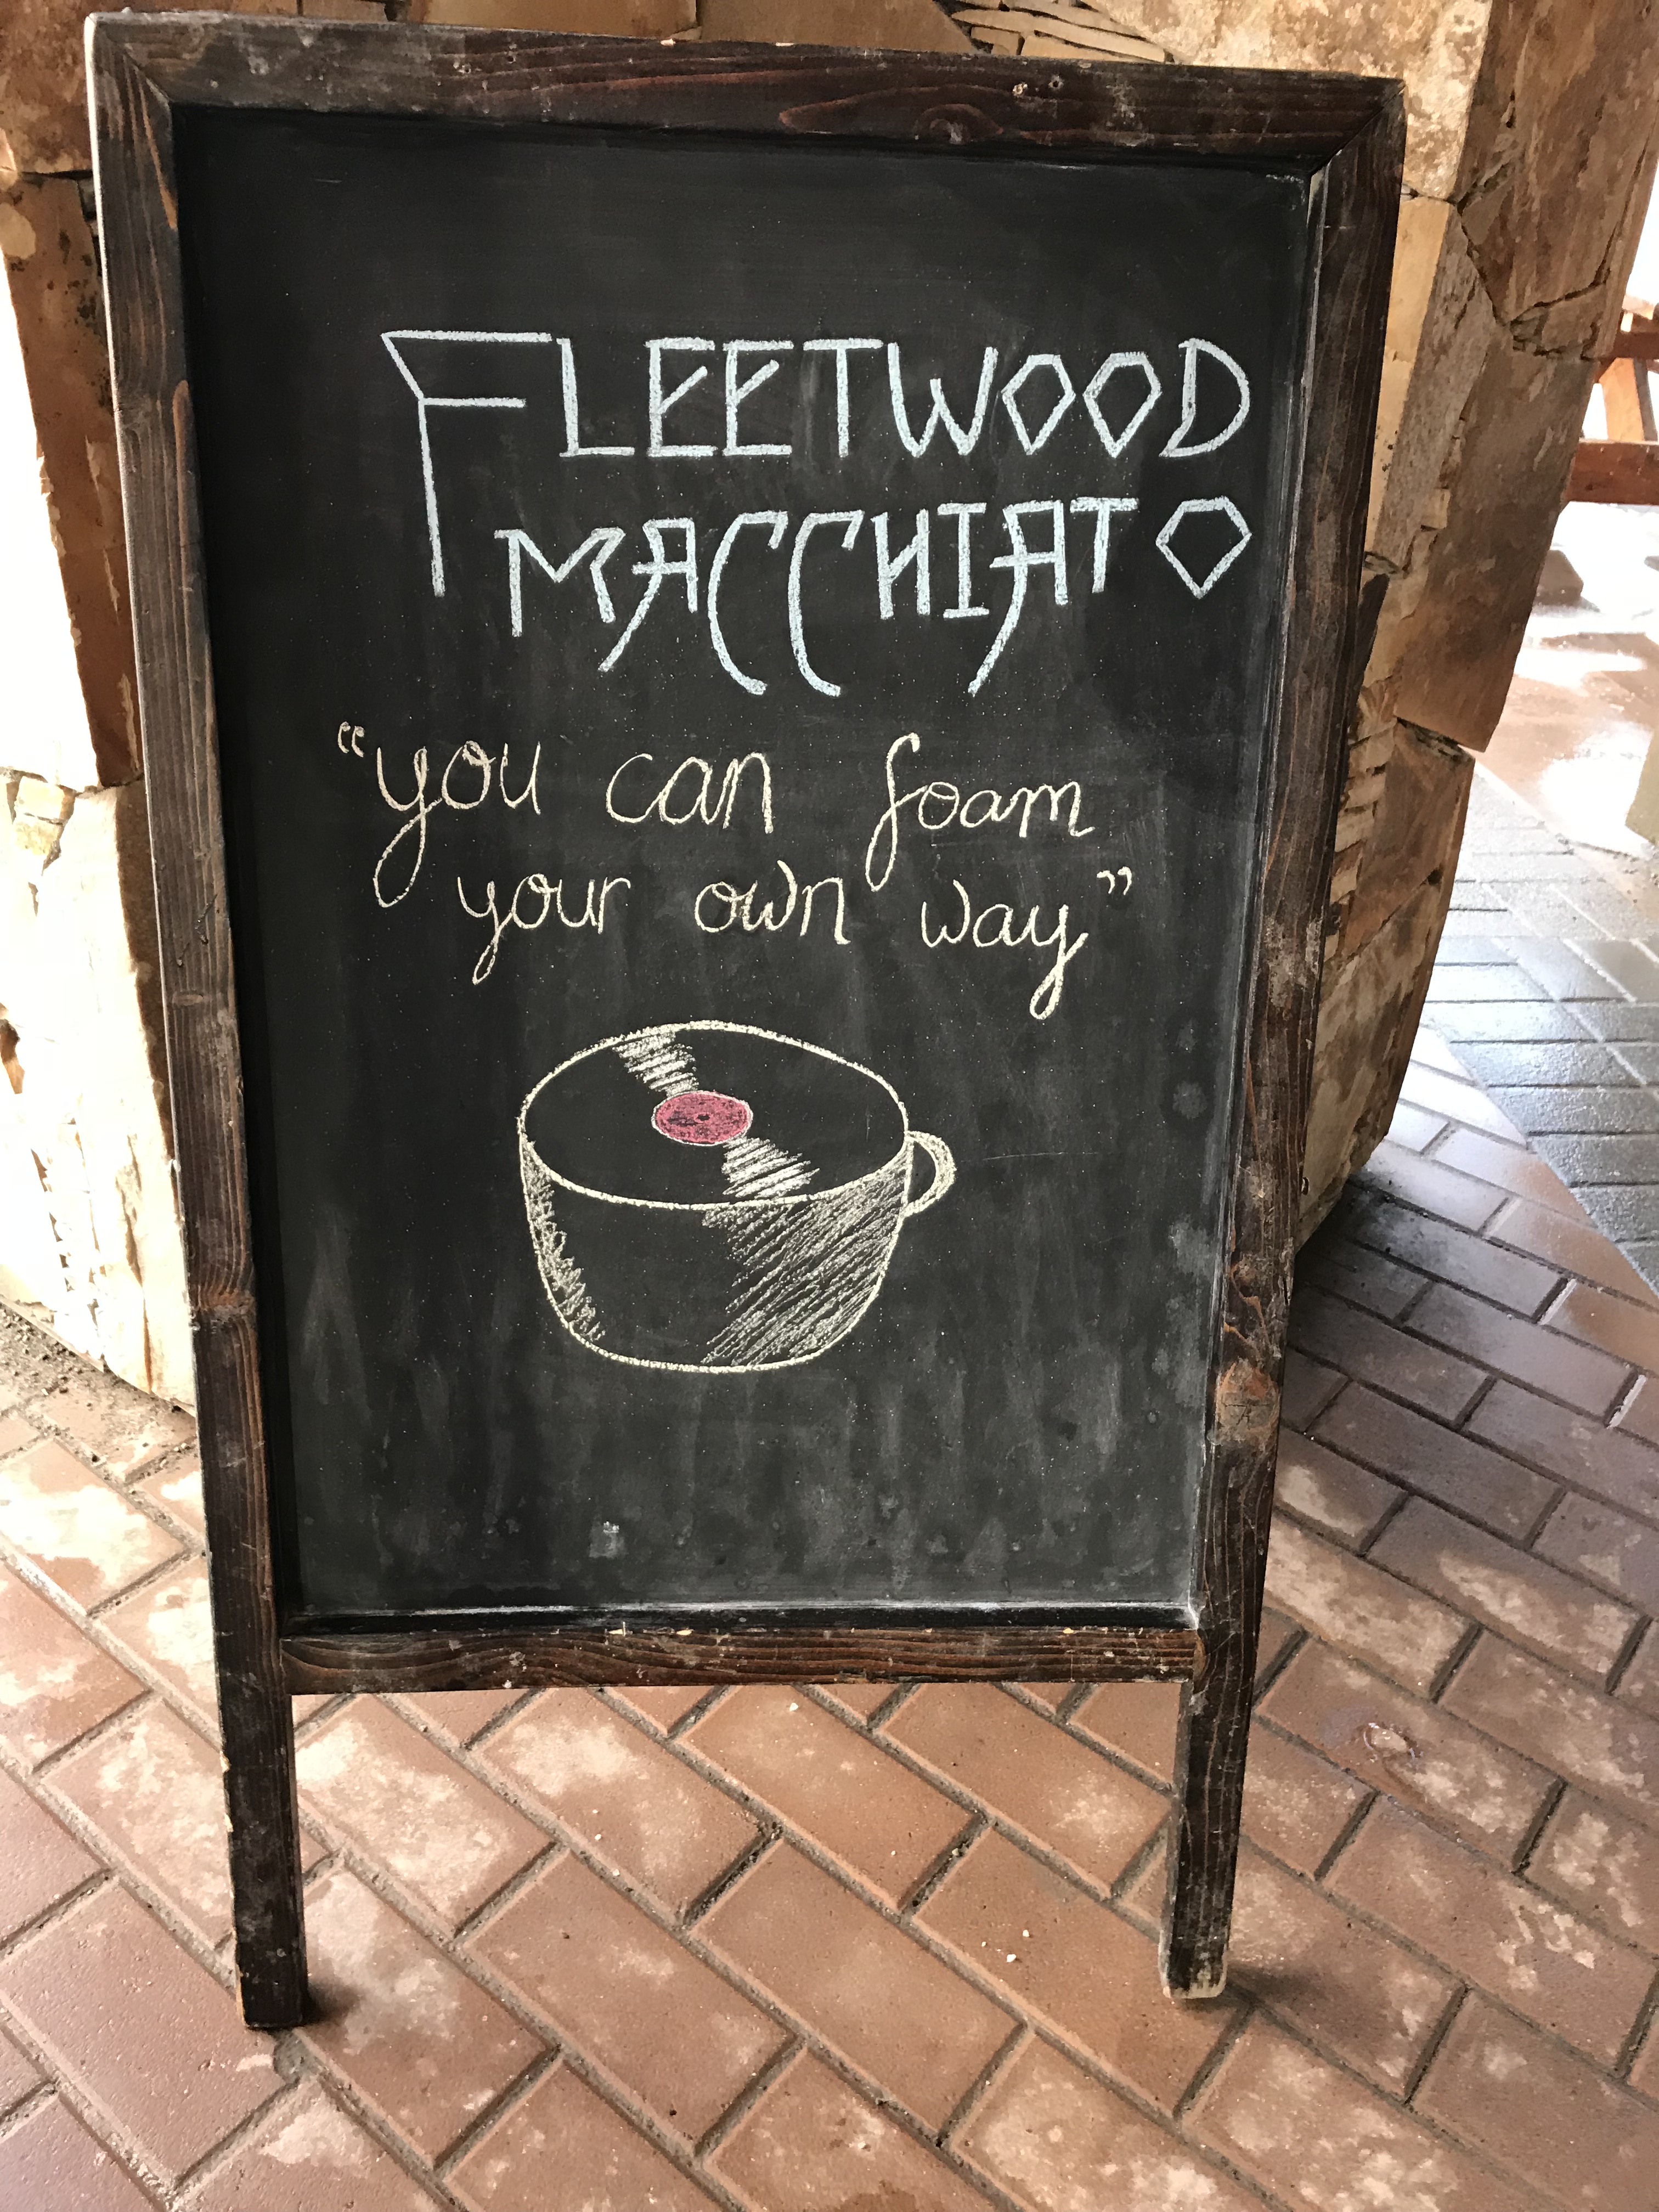 FLEETWOOD
MACCHIATO
“you can foam
your own way”